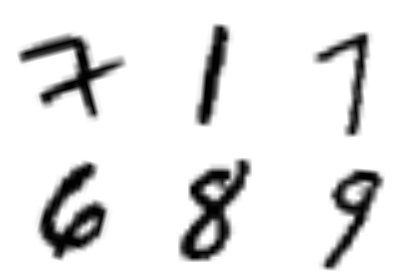 7 1 7
6 8 9